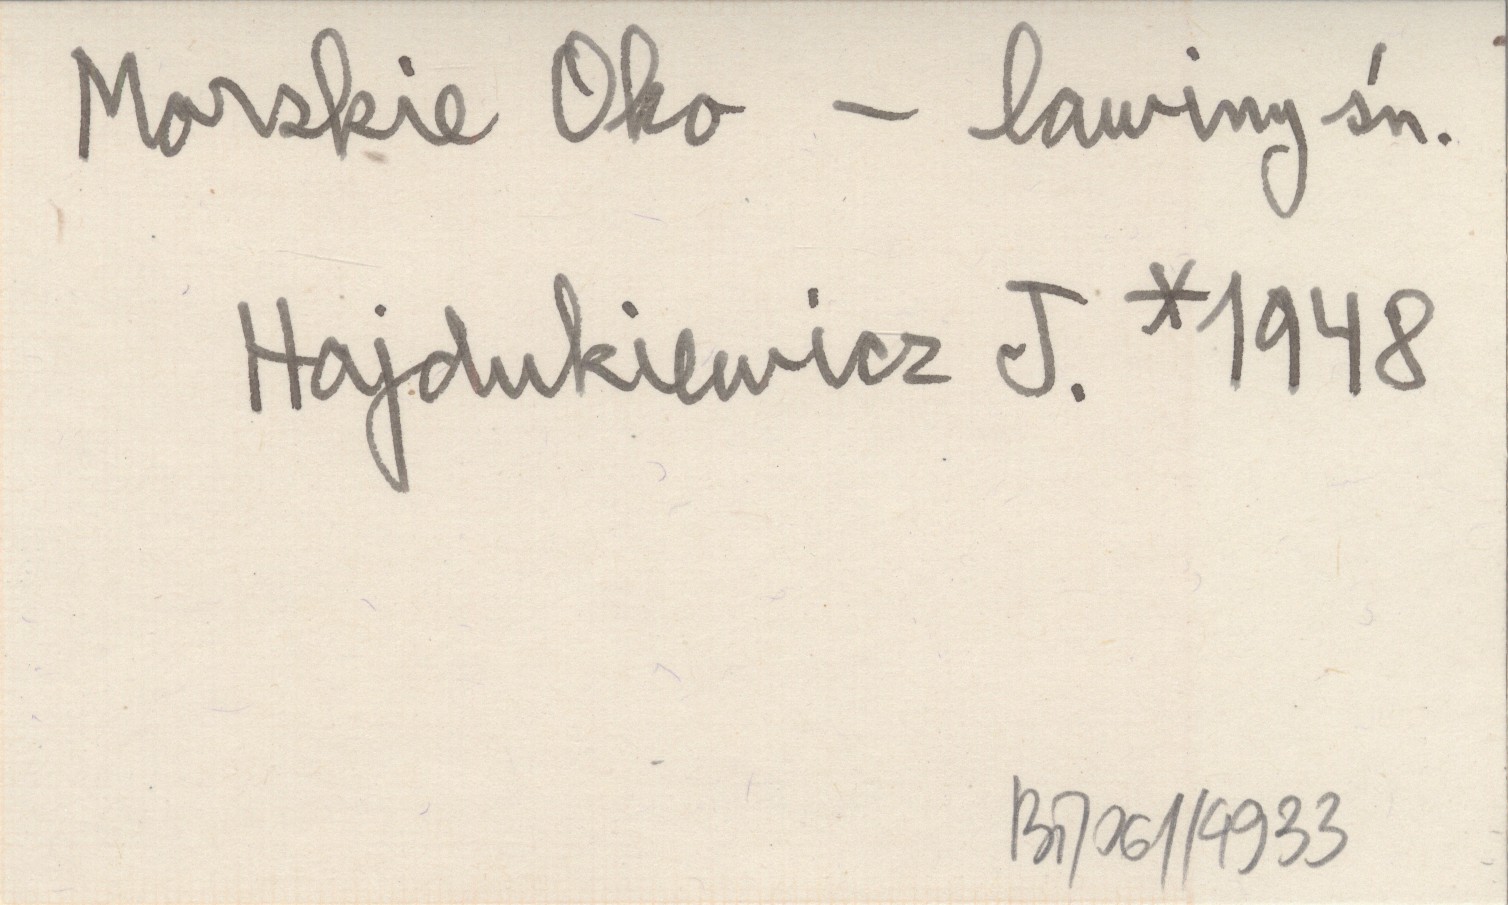 Morskie Oko – lawiny śn.
Hajdukiewicz J. *1948